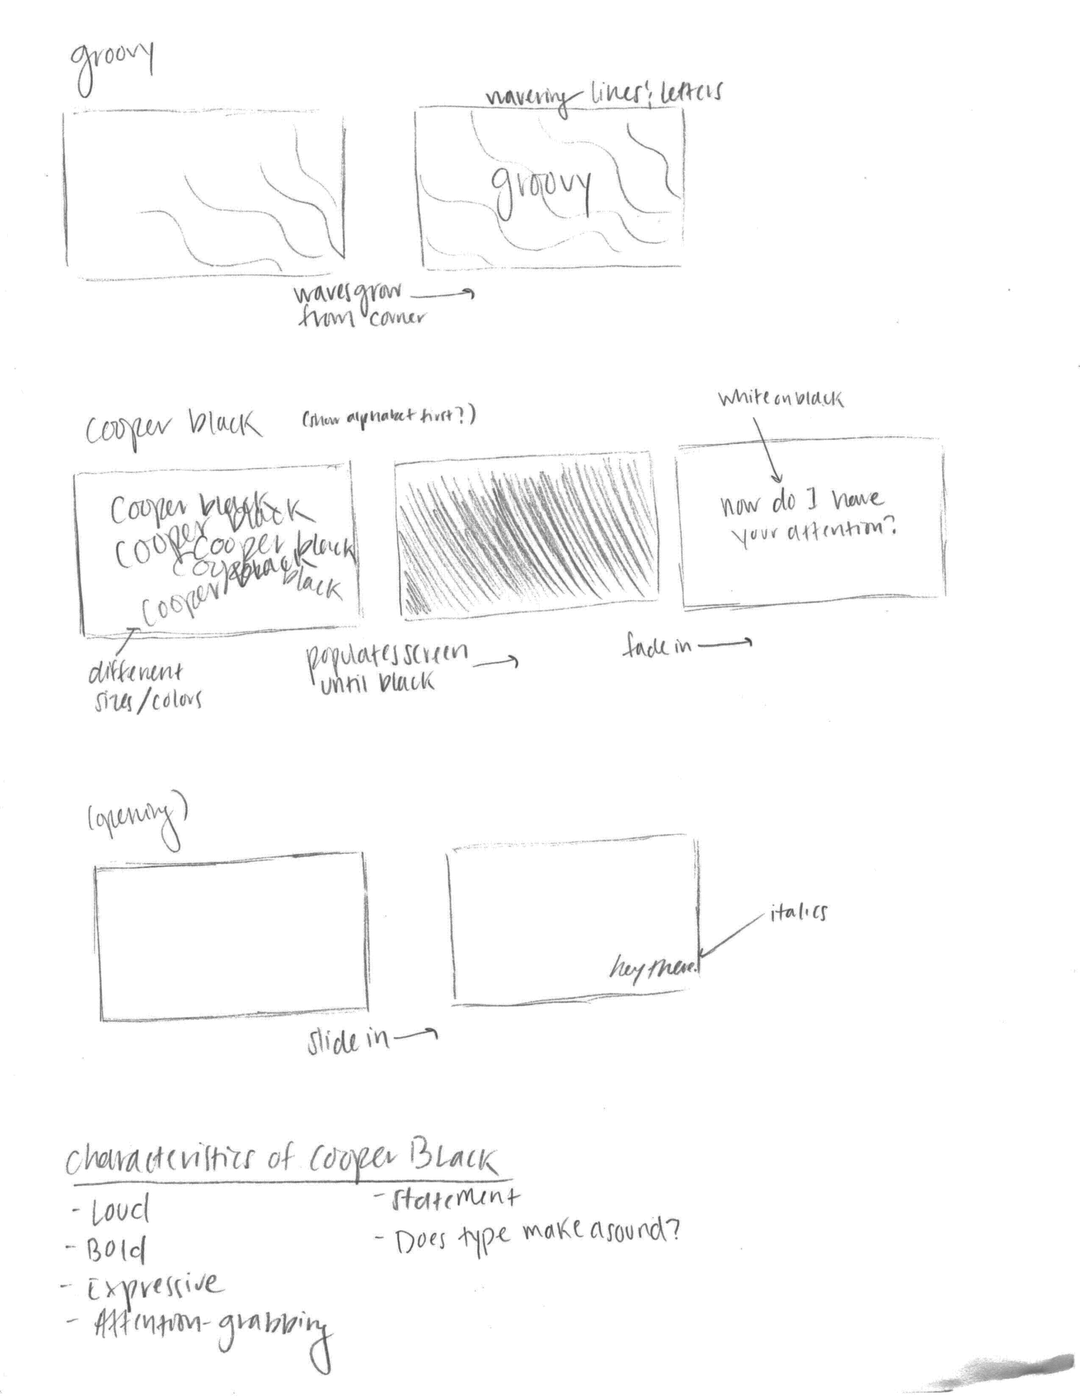 groovy
wavering lines & letters
groovy
waves grow
from corner
cooper black (show alphabet first?)
white on black
Cooper black
cooper black
cooper black
cooper black
cooper black
now do I have
your attention?
different
sizes/colors
populates screen
until black
fade in
(opening)
italics
hey there.
slide in
characteristics of Cooper Black
- Loud
- Bold
- Expressive
- Attention-grabbing
- statement
- Does type make a sound?